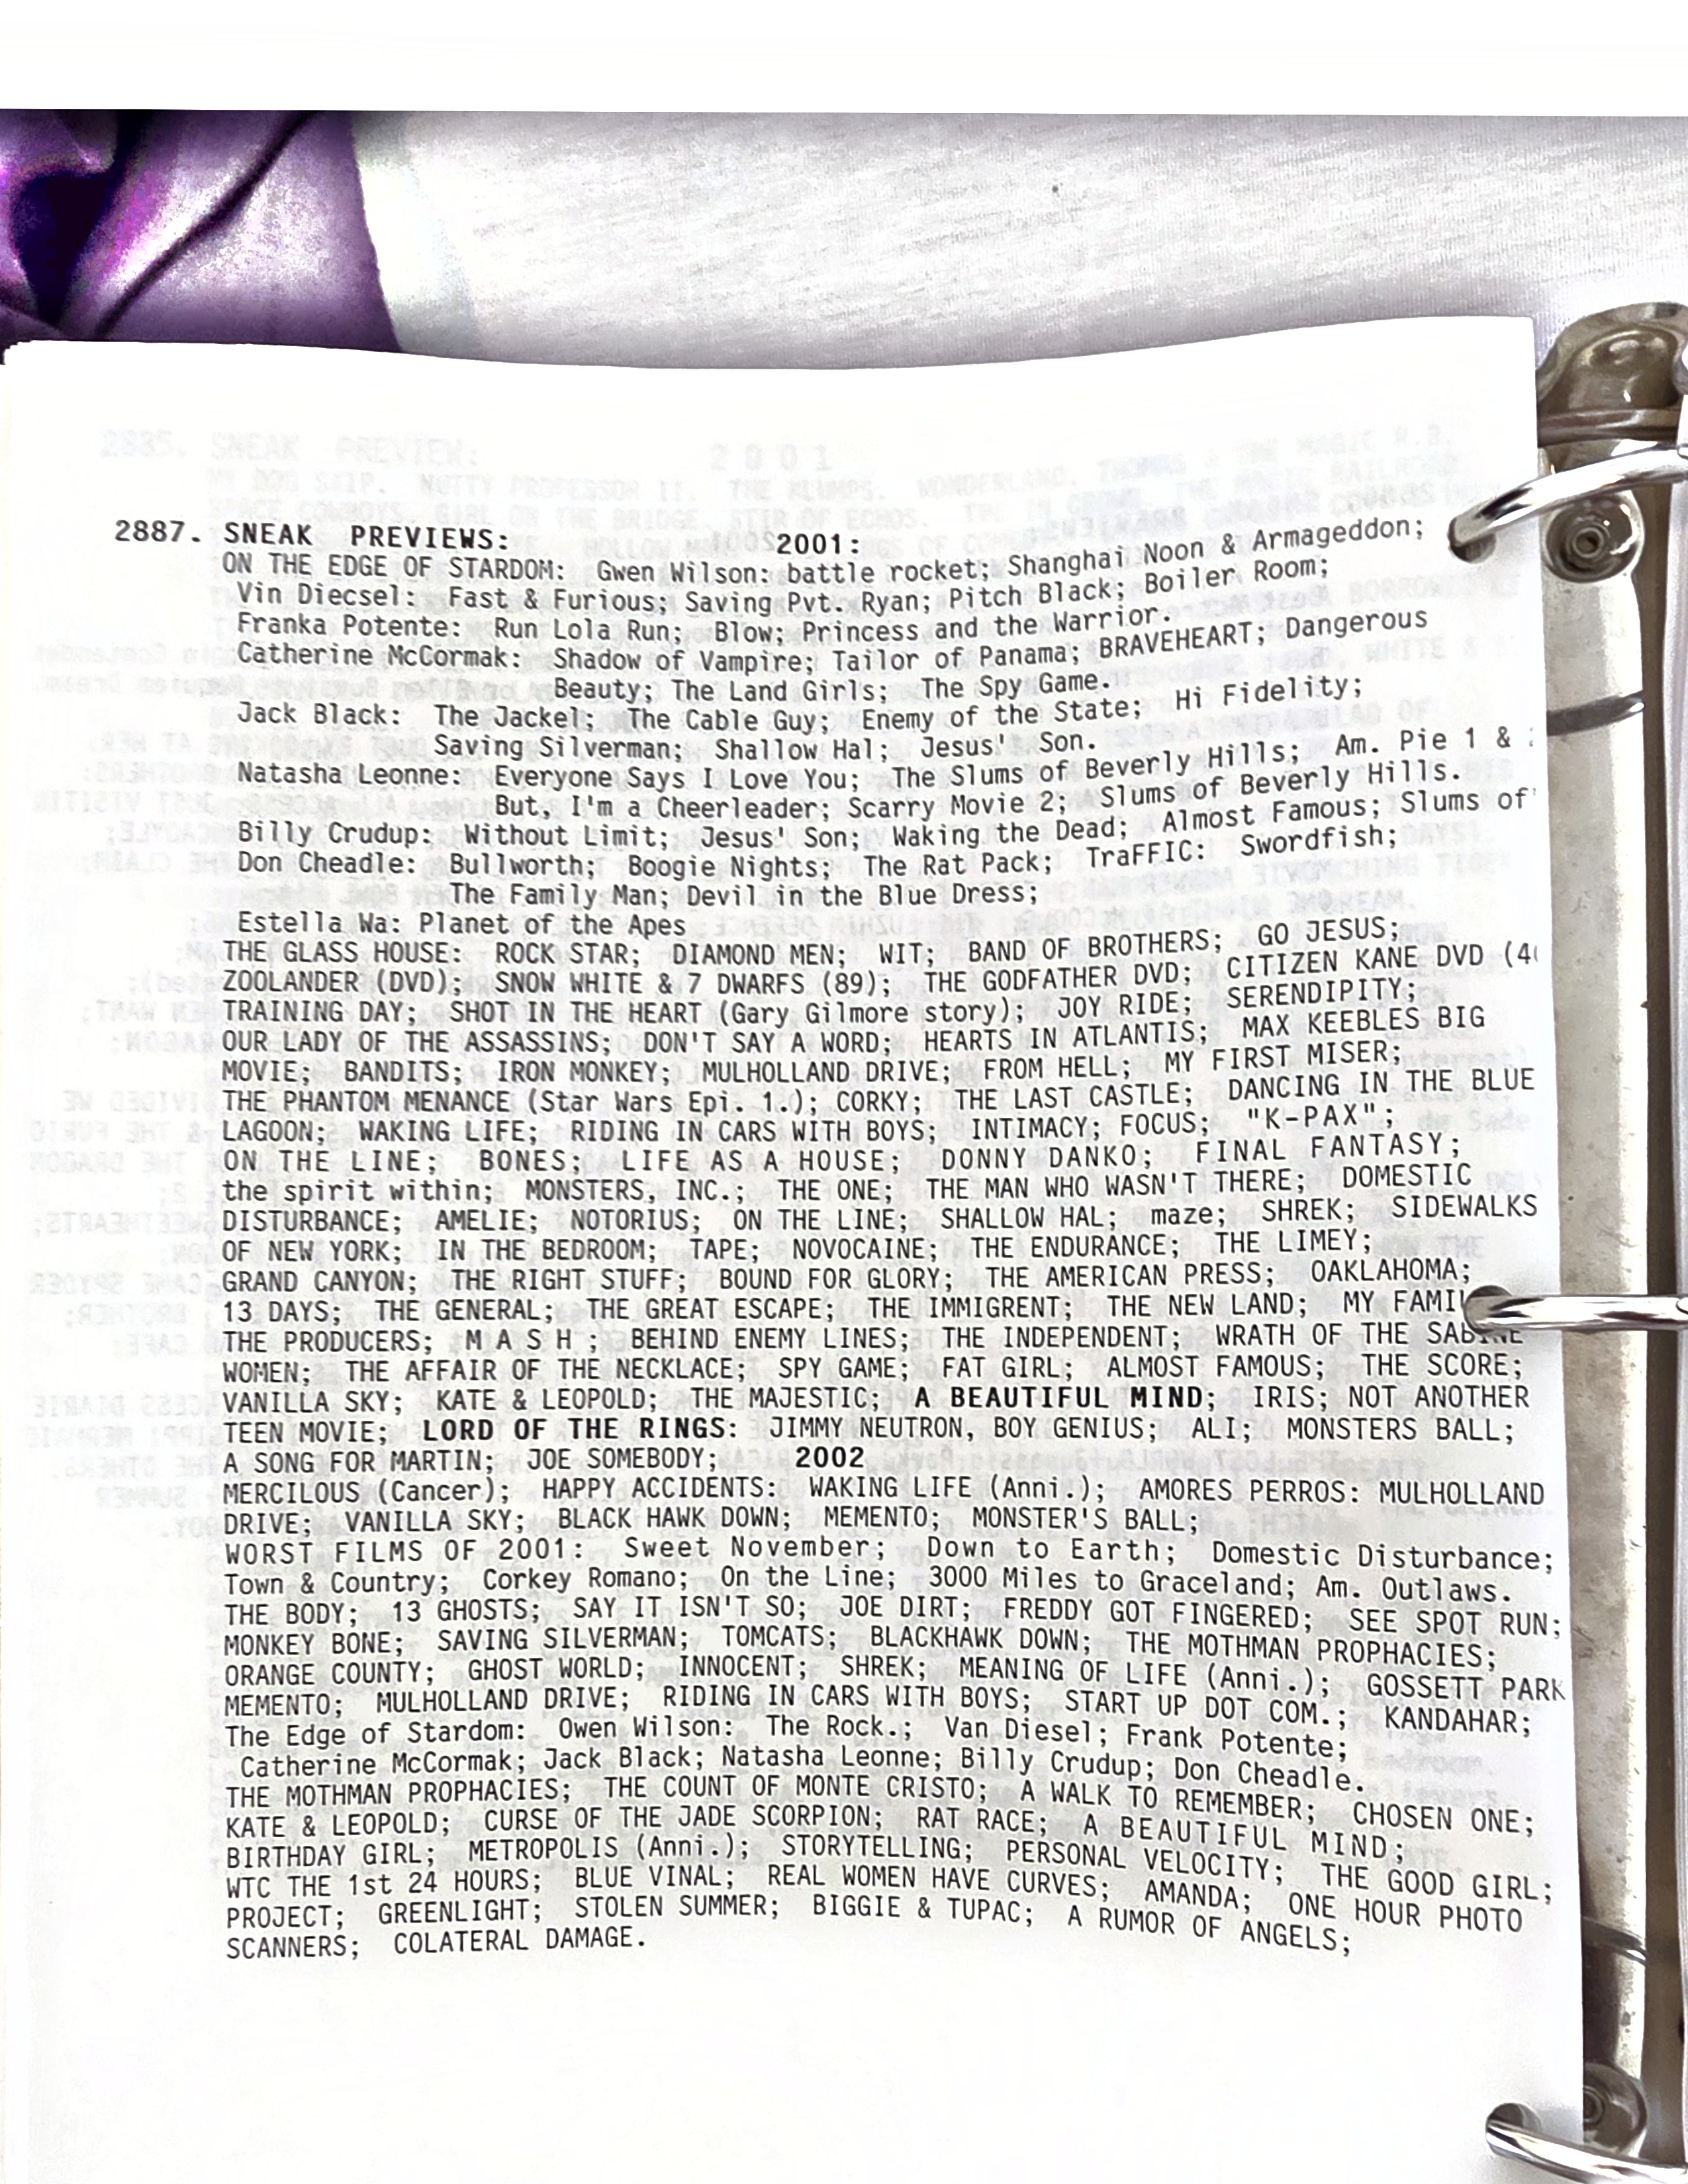 2887. SNEAK PREVIEWS: 2001:
ON THE EDGE OF STARDOM: Gwen Wilson: battle rocket; Shanghai Noon & Armageddon;
Vin Diecsel: Fast & Furious; Saving Pvt. Ryan; Pitch Black; Boiler Room;
Franka Potente: Run Lola Run; Blow; Princess and the Warrior.
Catherine McCormak: Shadow of Vampire; Tailor of Panama; BRAVEHEART; Dangerous
Beauty; The Land Girls; The Spy Game.
Jack Black: The Jackel; The Cable Guy; Enemy of the State; Hi Fidelity;
Saving Silverman; Shallow Hal; Jesus' Son.
Natasha Leonne: Everyone Says I Love You; The Slums of Beverly Hills; Am. Pie 1 &
But, I'm a Cheerleader; Scarry Movie 2; Slums of Beverly Hills.
Billy Crudup: Without Limit; Jesus' Son; Waking the Dead; Almost Famous; Slums of
Don Cheadle: Bullworth; Boogie Nights; The Rat Pack; TraFFIC: Swordfish;
The Family Man; Devil in the Blue Dress;
Estella Wa: Planet of the Apes
THE GLASS HOUSE: ROCK STAR; DIAMOND MEN; WIT; BAND OF BROTHERS; GO JESUS;
ZOOLANDER (DVD); SNOW WHITE & 7 DWARFS (89); THE GODFATHER DVD; CITIZEN KANE DVD
TRAINING DAY; SHOT IN THE HEART (Gary Gilmore story); JOY RIDE; SERENDIPITY;
OUR LADY OF THE ASSASSINS; DON'T SAY A WORD; HEARTS IN ATLANTIS; MAX KEEBLES BIG
MOVIE; BANDITS; IRON MONKEY; MULHOLLAND DRIVE; FROM HELL; MY FIRST MISER;
THE PHANTOM MENANCE (Star Wars Epi. 1.); CORKY; THE LAST CASTLE; DANCING IN THE BLUE
LAGOON; WAKING LIFE; RIDING IN CARS WITH BOYS; INTIMACY; FOCUS; "K-PAX";
ON THE LINE; BONES; LIFE AS A HOUSE; DONNY DANKO; FINAL FANTASY;
the spirit within; MONSTERS, INC.; THE ONE; THE MAN WHO WASN'T THERE; DOMESTIC
DISTURBANCE; AMELIE; NOTORIUS; ON THE LINE; SHALLOW HAL; maze; SHREK; SIDEWALKS
OF NEW YORK; IN THE BEDROOM; TAPE; NOVOCAINE; THE ENDURANCE; THE LIMEY;
GRAND CANYON; THE RIGHT STUFF; BOUND FOR GLORY; THE AMERICAN PRESS; OAKLAHOMA;
13 DAYS; THE GENERAL; THE GREAT ESCAPE; THE IMMIGRENT; THE NEW LAND; MY
THE PRODUCERS; M A S H ; BEHIND ENEMY LINES; THE INDEPENDENT; WRATH OF THE SABINE
WOMEN; THE AFFAIR OF THE NECKLACE; SPY GAME; FAT GIRL; ALMOST FAMOUS; THE SCORE;
VANILLA SKY; KATE & LEOPOLD; THE MAJESTIC; A BEAUTIFUL MIND; IRIS; NOT ANOTHER
TEEN MOVIE; LORD OF THE RINGS: JIMMY NEUTRON, BOY GENIUS; ALI; MONSTERS BALL;
A SONG FOR MARTIN; JOE SOMEBODY; 2002
MERCILOUS (Cancer); HAPPY ACCIDENTS: WAKING LIFE (Anni.); AMORES PERROS: MULHOLLAND
DRIVE; VANILLA SKY; BLACK HAWK DOWN; MEMENTO; MONSTER'S BALL;
WORST FILMS OF 2001: Sweet November; Down to Earth; Domestic Disturbance;
Town & Country; Corkey Romano; On the Line; 3000 Miles to Graceland; Am. Outlaws.
THE BODY; 13 GHOSTS; SAY IT ISN'T SO; JOE DIRT; FREDDY GOT FINGERED; SEE SPOT RUN;
MONKEY BONE; SAVING SILVERMAN; TOMCATS; BLACKHAWK DOWN; THE MOTHMAN PROPHACIES;
ORANGE COUNTY; GHOST WORLD; INNOCENT; SHREK; MEANING OF LIFE (Anni.); GOSSETT PARK
MEMENTO; MULHOLLAND DRIVE; RIDING IN CARS WITH BOYS; START UP DOT COM.; KANDAHAR;
The Edge of Stardom: Owen Wilson: The Rock.; Van Diesel; Frank Potente;
Catherine McCormak; Jack Black; Natasha Leonne; Billy Crudup; Don Cheadle.
THE MOTHMAN PROPHACIES; THE COUNT OF MONTE CRISTO; A WALK TO REMEMBER; CHOSEN ONE;
KATE & LEOPOLD; CURSE OF THE JADE SCORPION; RAT RACE; A BEAUTIFUL MIND;
BIRTHDAY GIRL; METROPOLIS (Anni.); STORYTELLING; PERSONAL VELOCITY; THE GOOD GIRL;
WTC THE 1st 24 HOURS; BLUE VINAL; REAL WOMEN HAVE CURVES; AMANDA; ONE HOUR PHOTO
PROJECT; GREENLIGHT; STOLEN SUMMER; BIGGIE & TUPAC; A RUMOR OF ANGELS;
SCANNERS; COLATERAL DAMAGE.